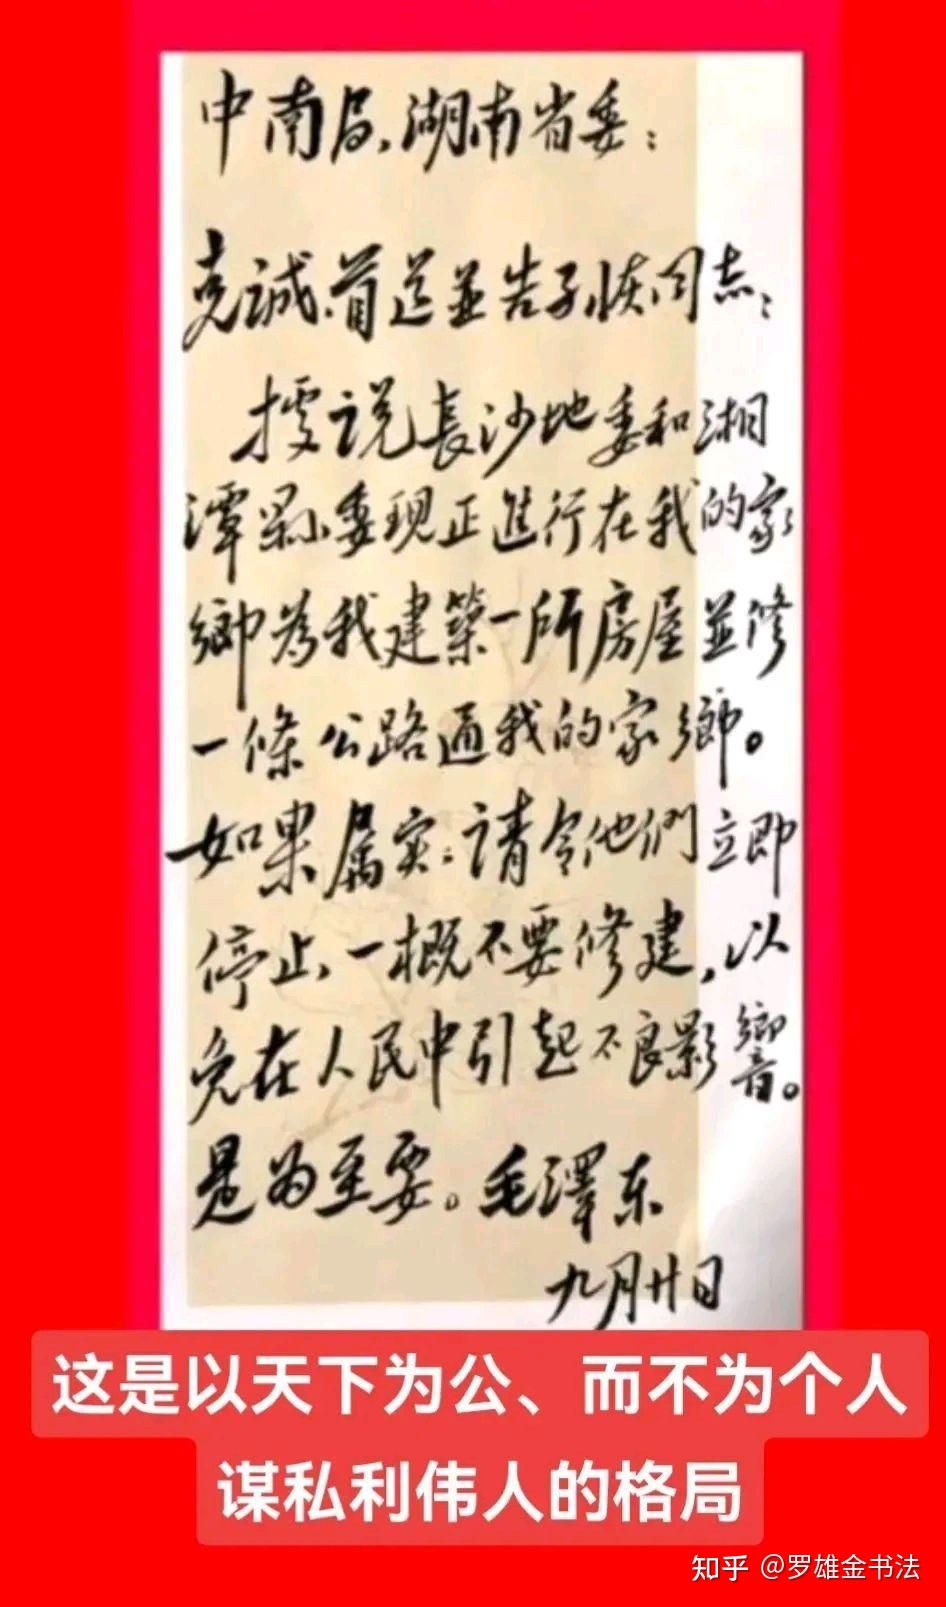 中南局、湖南省委：
克誠、首道並告子恢同志：
據说長沙地委和湘
潭縣委現正進行在我的家
鄉为我建築一所房屋並修
一條公路通我的家鄉。
如果属实，請令他們立即
停止，一概不要修建，以
免在人民中引起不良影響。
是为至要。毛澤东
九月廿日
这是以天下为公、而不为个人
谋私利伟人的格局
知乎 @罗雄金书法